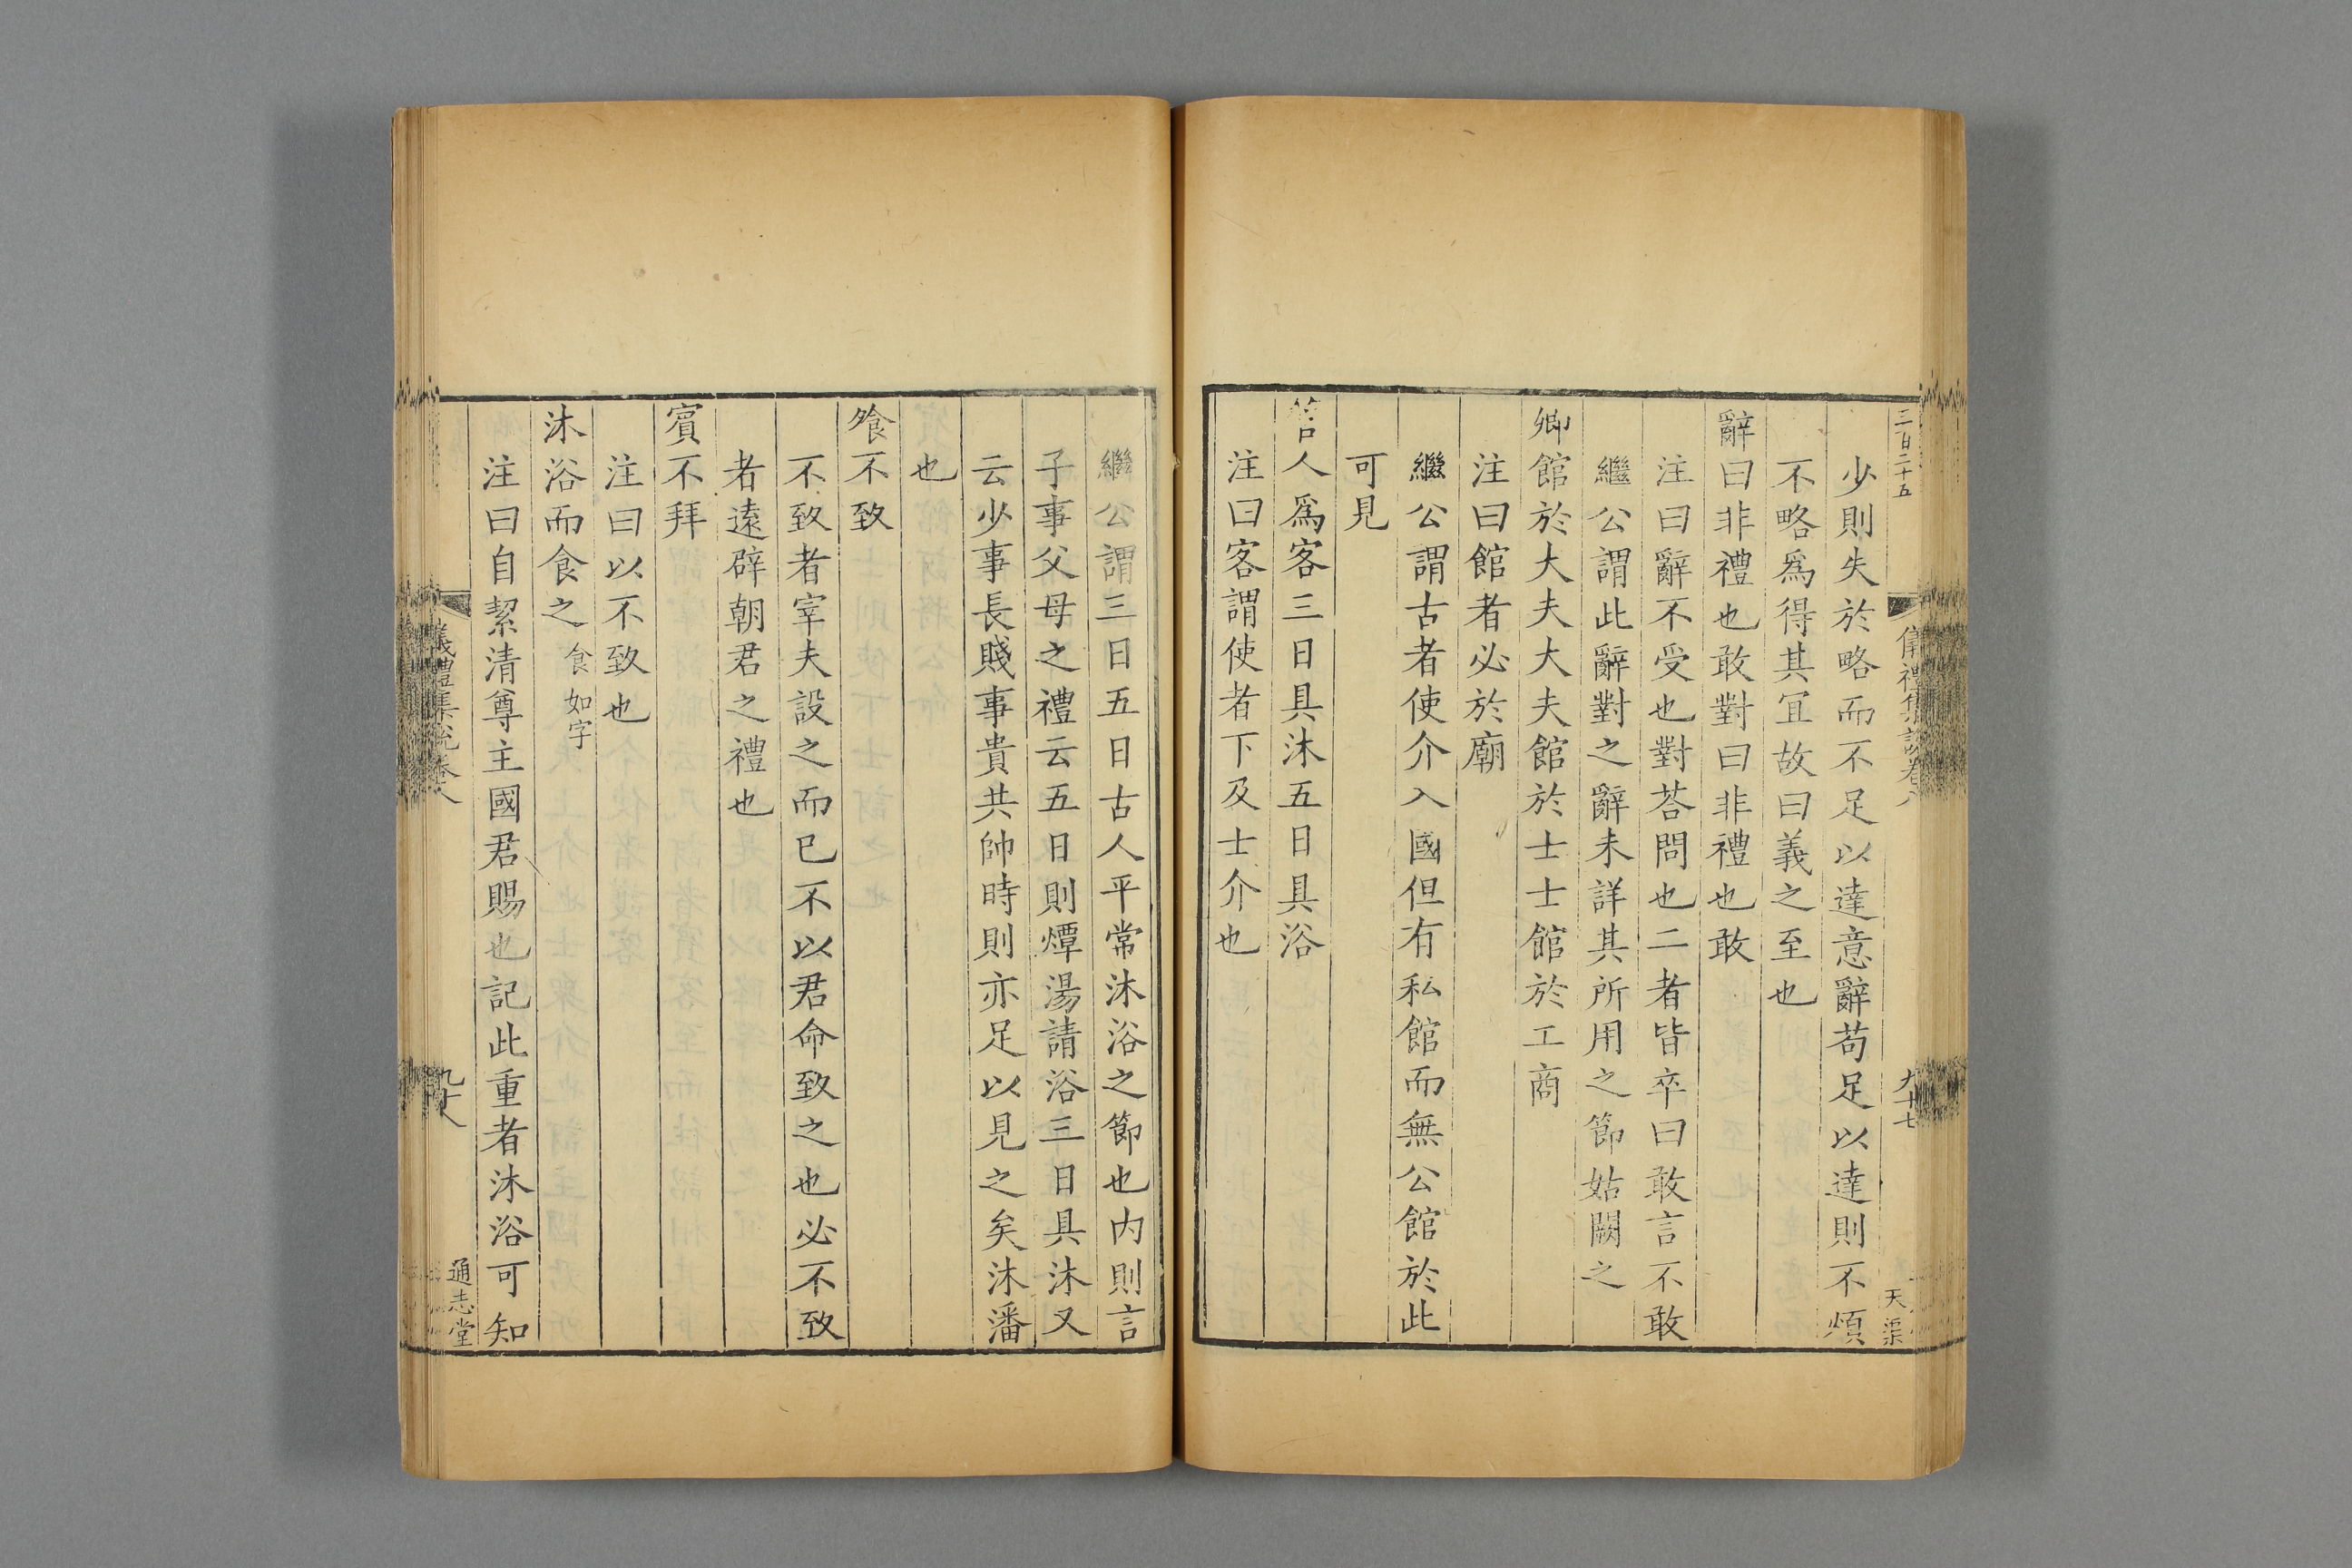 二百二十五
儀禮集說卷八
九十七
天渠
少則失於略而不足以達意辭苟足以達則不煩
不略爲得其冝故曰義之至也
辭曰非禮也敢對曰非禮也敢
注曰辭不受也對荅問也二者皆卒曰敢言不敢
繼公謂此辭對之辭未詳其所用之節姑闕之
卿館於大夫大夫館於士士館於工商
注曰館者必於廟
繼公謂古者使介入國但有私館而無公館於此
可見
管人爲客三日具沐五日具浴
注曰客謂使者下及士介也
繼公謂三日五日古人平常沐浴之節也内則言
子事父母之禮云五日則燂湯請浴三日具沐又
云少事長賤事貴共帥時則亦足以見之矣沐潘
也
飧不致
不致者宰夫設之而已不以君命致之也必不致
者遠辟朝君之禮也
賓不拜
注曰以不致也
沐浴而食之食如字
注曰自絜清尊主國君賜也記此重者沐浴可知
儀禮集說卷八
九十八
通志堂